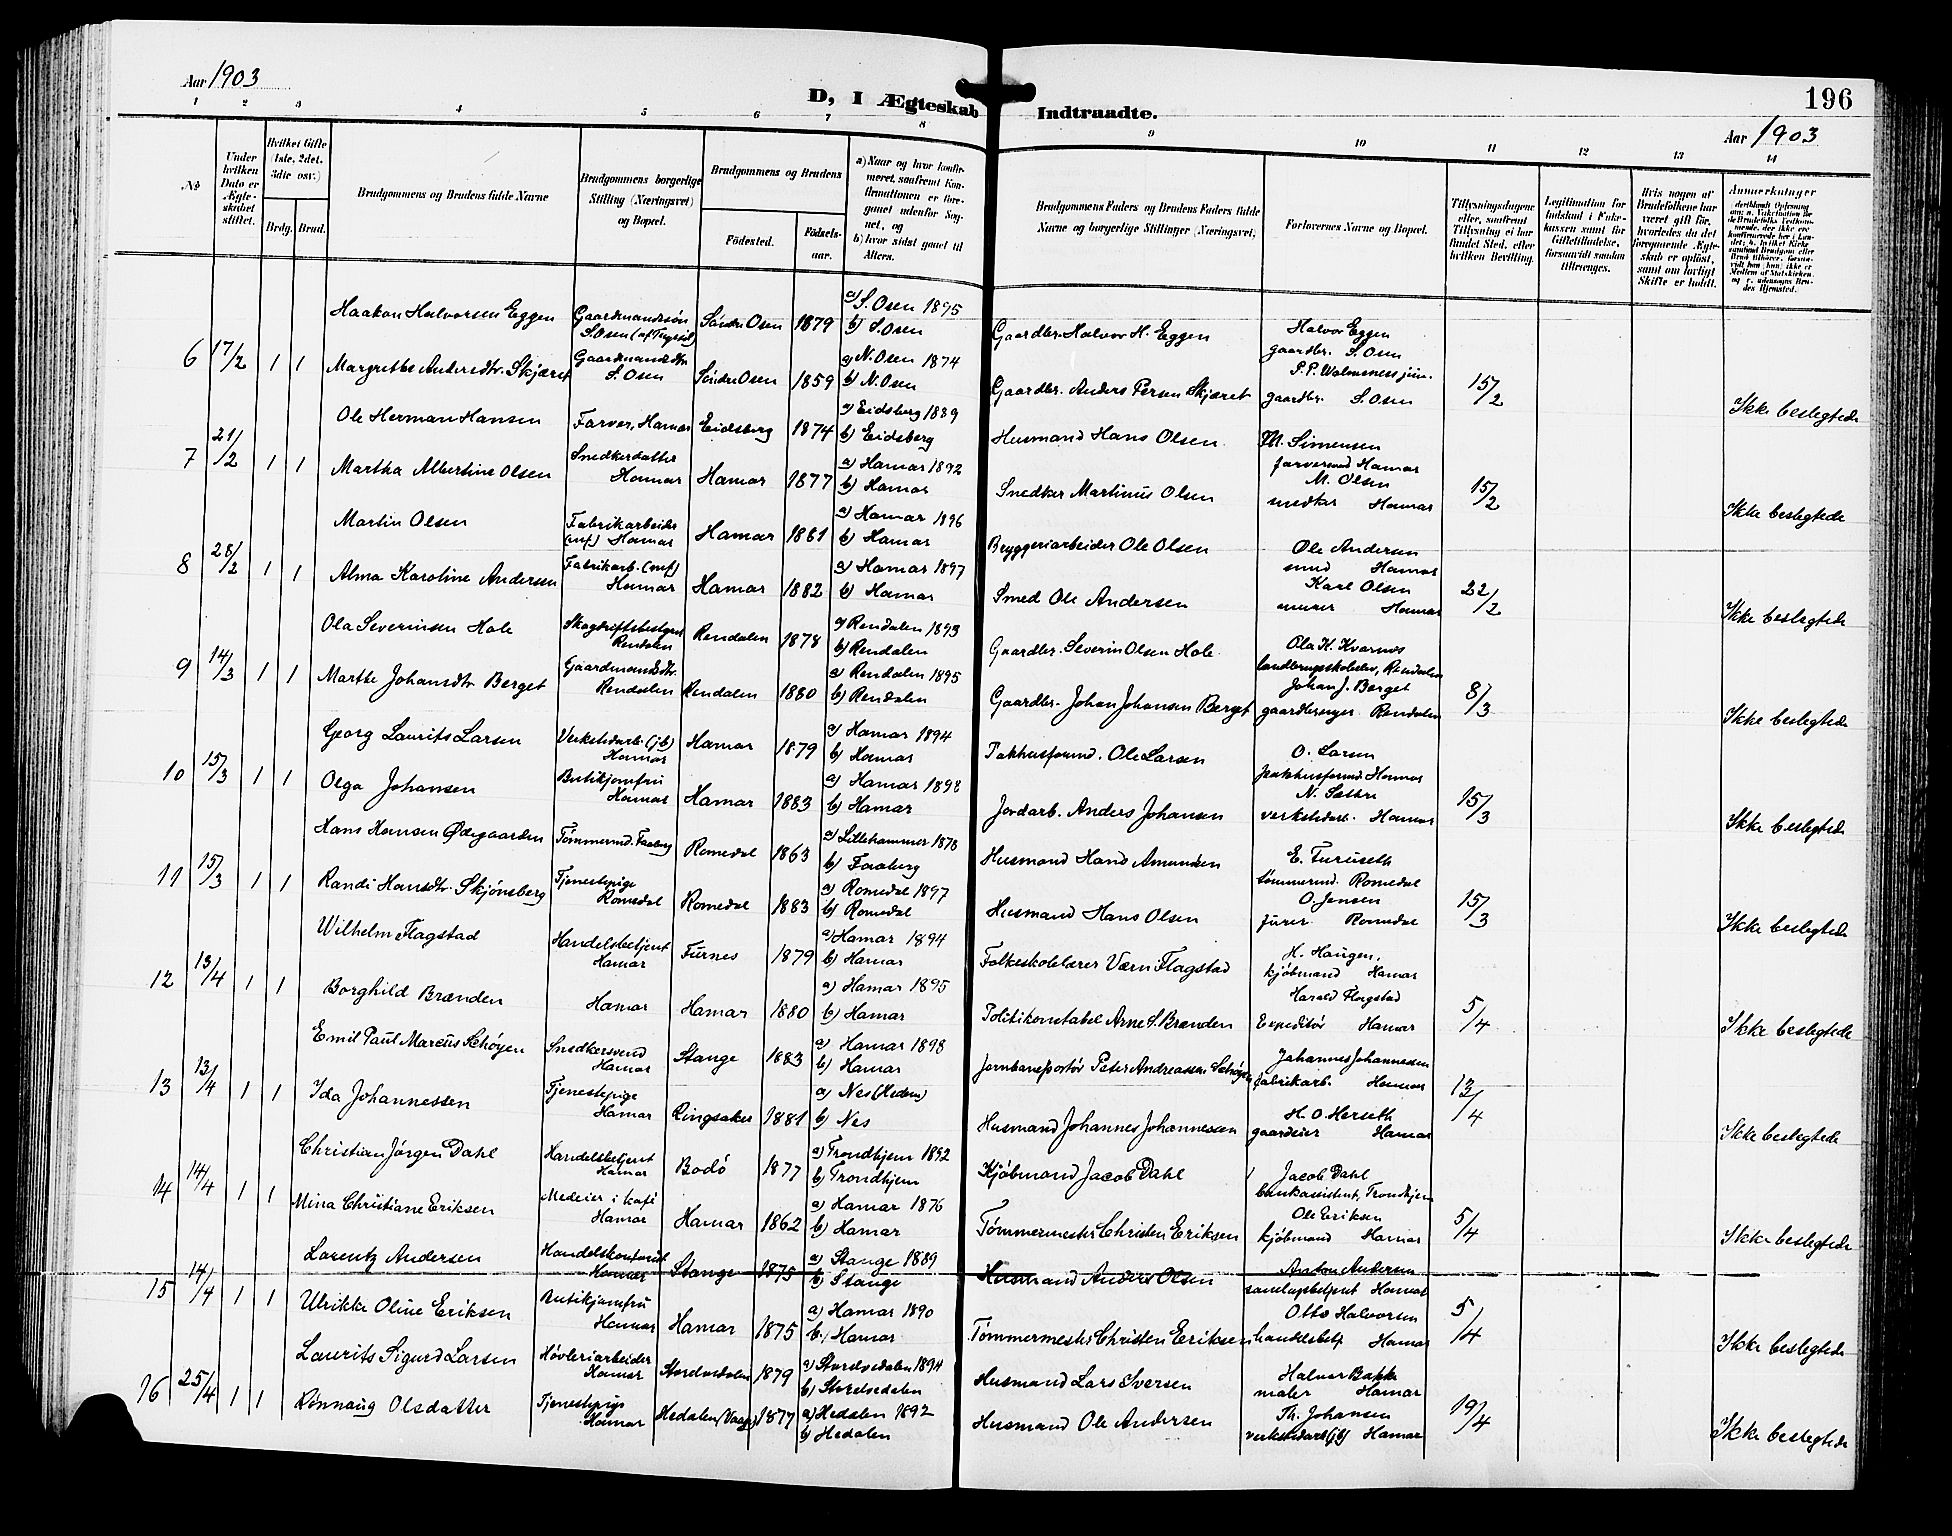 196
Aar 1903
D, I Ægteskab Indtraadte.
Aar 1903
1 2 3 4 5 6 7 8 9 10 11 12 13 14
№
Under hvilken Dato er Ægteskabet stiftet.
Hvilket Gifte (1ste, 2det, 3die osv.)
Brdg. Brud.
Brudgommens og Brudens fulde Navne
Brudgommens borgerlige Stilling (Næringsvei) og Bopæl.
Brudgommens og Brudens
Födested.
Födselsaar.
a) Naar og hvor konfirmeret, saafremt Konfirmationen er foregaaet udenfor Sognet, og
b) hvor sidst gaaet til Alters.
Brudgommens Faders og Brudens Faders fulde Navne og borgerlige Stillinger (Næringsvei)
Forlovernes Navne og Bopæl.
Tillysningsdagene eller, saafremt Tillysning ei har fundet Sted, efter hvilken Bevilling.
Legitimation for Indskud i Enkekassen samt for Giftetilladelse, forsaavidt saadan tiltrænges.
Hvis nogen af Brudefolkene har været gift før, hvorledes da det foregaaende Ægteskab er opløst, samt om lovligt Skifte er holdt.
Anmærkninger
Haakon Halvorsen Eggen Gaardmandssön S. Osen (af Trysil) Söndre Osen 1879 a) S. Osen 1895 b) S. Osen Gaardbr. Halvor H. Eggen Halvor Eggen gaardbr. S. Osen
6 17/2 1 1 Margrethe Andersdtr. Skjæret Gaardmandsdtr. S. Osen Söndre Osen 1859 a) N. Osen 1874 b) N. Osen Gaardbr. Anders Persen Skjæret gaardbr. S. Osen 15/2 Ikke beslegtede
Ole Herman Hansen Farver, Hamar Eidsberg 1874 a) Eidsberg 1889 b) Eidsberg Husmand Hans Olsen M. Simensen farversvend Hamar
7 21/2 1 1 Martha Albertine Olsen Snedkerdatter Hamar Hamar 1877 a) Hamar 1892 b) Hamar Snedker Martinus Olsen M. Olsen snedker Hamar 15/2 Ikke beslegtede
Martin Olsen Fabrikarbeider Hamar Hamar 1881 a) Hamar 1896 b) Hamar Bryggeriarbeider Ole Olsen Ole Andersen smed Hamar
8 28/2 1 1 Alma Karoline Andersen Fabrikarb. Hamar Hamar 1882 a) Hamar 1897 b) Hamar Smed Ole Andersen Karl Olsen murer Hamar 22/2 Ikke beslegtede
Ola Severinsen Hole Skogdriftsbestyrer Rendalen Rendalen 1878 a) Rendalen 1893 b) Rendalen Gaardbr. Severin Olsen Hole Ola K. Kvarnes landbrugsskoleelev, Rendalen
9 14/3 1 1 Marthe Johansdtr Berget Gaardmandsdtr. Rendalen Rendalen 1880 a) Rendalen 1895 b) Rendalen Gaardbr. Johan Johansen Berget Johan J. Berget gaardbruger Rendalen 8/3 Ikke beslegtede
Georg Laurits Larsen Verkstedarb. (jb) Hamar Hamar 1879 a) Hamar 1894 b) Hamar Pakhusformd. Ole Larsen O. Larsen pakhusformd Hamar
10 15/3 1 1 Olga Johansen Butikjomfru Hamar Hamar 1883 a) Hamar 1898 b) Hamar Jordarb. Anders Johansen N. Sættre verkstedarb. Hamar 15/3 Ikke beslegtede
Hans Hansen Ødegaarden Tømmermd. Faaberg Romedal 1863 a) Lillehammer 1878 b) Faaberg Husmand Hans Amundsen E. Furuseth tømmermd. Romedal
11 15/3 1 1 Randi Hansdtr. Skjønsberg Tjenestepige Romedal Romedal 1883 a) Romedal 1897 b) Romedal Husmand Hans Olsen O. Jensen Romedal 15/3 Ikke beslegtede
Wilhelm Flagstad Handelsbetjent Hamar Furnes 1879 a) Hamar 1894 b) Hamar Folkeskolelærer Værn Flagstad H. Haugen, kjøbmand Hamar
12 13/4 1 1 Borghild Brænden Hamar Hamar 1880 a) Hamar 1895 b) Hamar Politikonstabel Arne S. Brænden Harald Flagstad Expeditör Hamar 5/4 Ikke beslegtede
Emil Paul Marcus Schøyen Snedkersvend Hamar Stange 1883 a) Hamar 1898 b) Hamar Jernbaneportör Peter Andreassen Schøyen Johannes Johannessen fabrikarb. Hamar
13 13/4 1 1 Ida Johannessen Tjenestepige Hamar Ringsaker 1881 a) Nes (Hedem) b) Nes Husmand Johannes Johannessen H. O. Herseth gaardeier Hamar 13/4 Ikke beslegtede
Christian Jørgen Dahl Handelsbetjent Hamar Bodö 1877 a) Trondhjem 1892 b) Trondhjem Kjöbmand Jacob Dahl Jacob Dahl bankassistent, Trondhjem
14 14/4 1 1 Mina Christiane Eriksen Medeier i kafé Hamar Hamar 1862 a) Hamar 1876 b) Hamar Tømmermester Christen Eriksen Ole Eriksen kjöbmand Hamar 5/4 Ikke beslegtede
Lorentz Andersen Handelskontorist Hamar Stange 1875 a) Stange 1889 b) Stange Husmand Anders Olsen Anton Andersen samlagsbetjent Hamar
15 14/4 1 1 Ulrikke Oline Eriksen Butikjomfru Hamar Hamar 1875 a) Hamar 1890 b) Hamar Tømmermester Christen Eriksen Otto Halvorsen handelsbetj Hamar 5/4 Ikke beslegtede
Laurits Sigurd Larsen Høvleriarbeider Hamar Storelvedalen 1879 a) Storelvedalen 1894 b) Storelvedalen Husmand Lars Iversen Halvor Bakke maler Hamar
16 25/4 1 1 Rönnaug Olsdatter Tjenestepige Hamar Hedalen (Vaage) 1877 a) Hedalen 1892 b) Hedalen Husmand Ole Andersen Th. Johansen verkstedarb (jb) Hamar 19/4 Ikke beslegtede